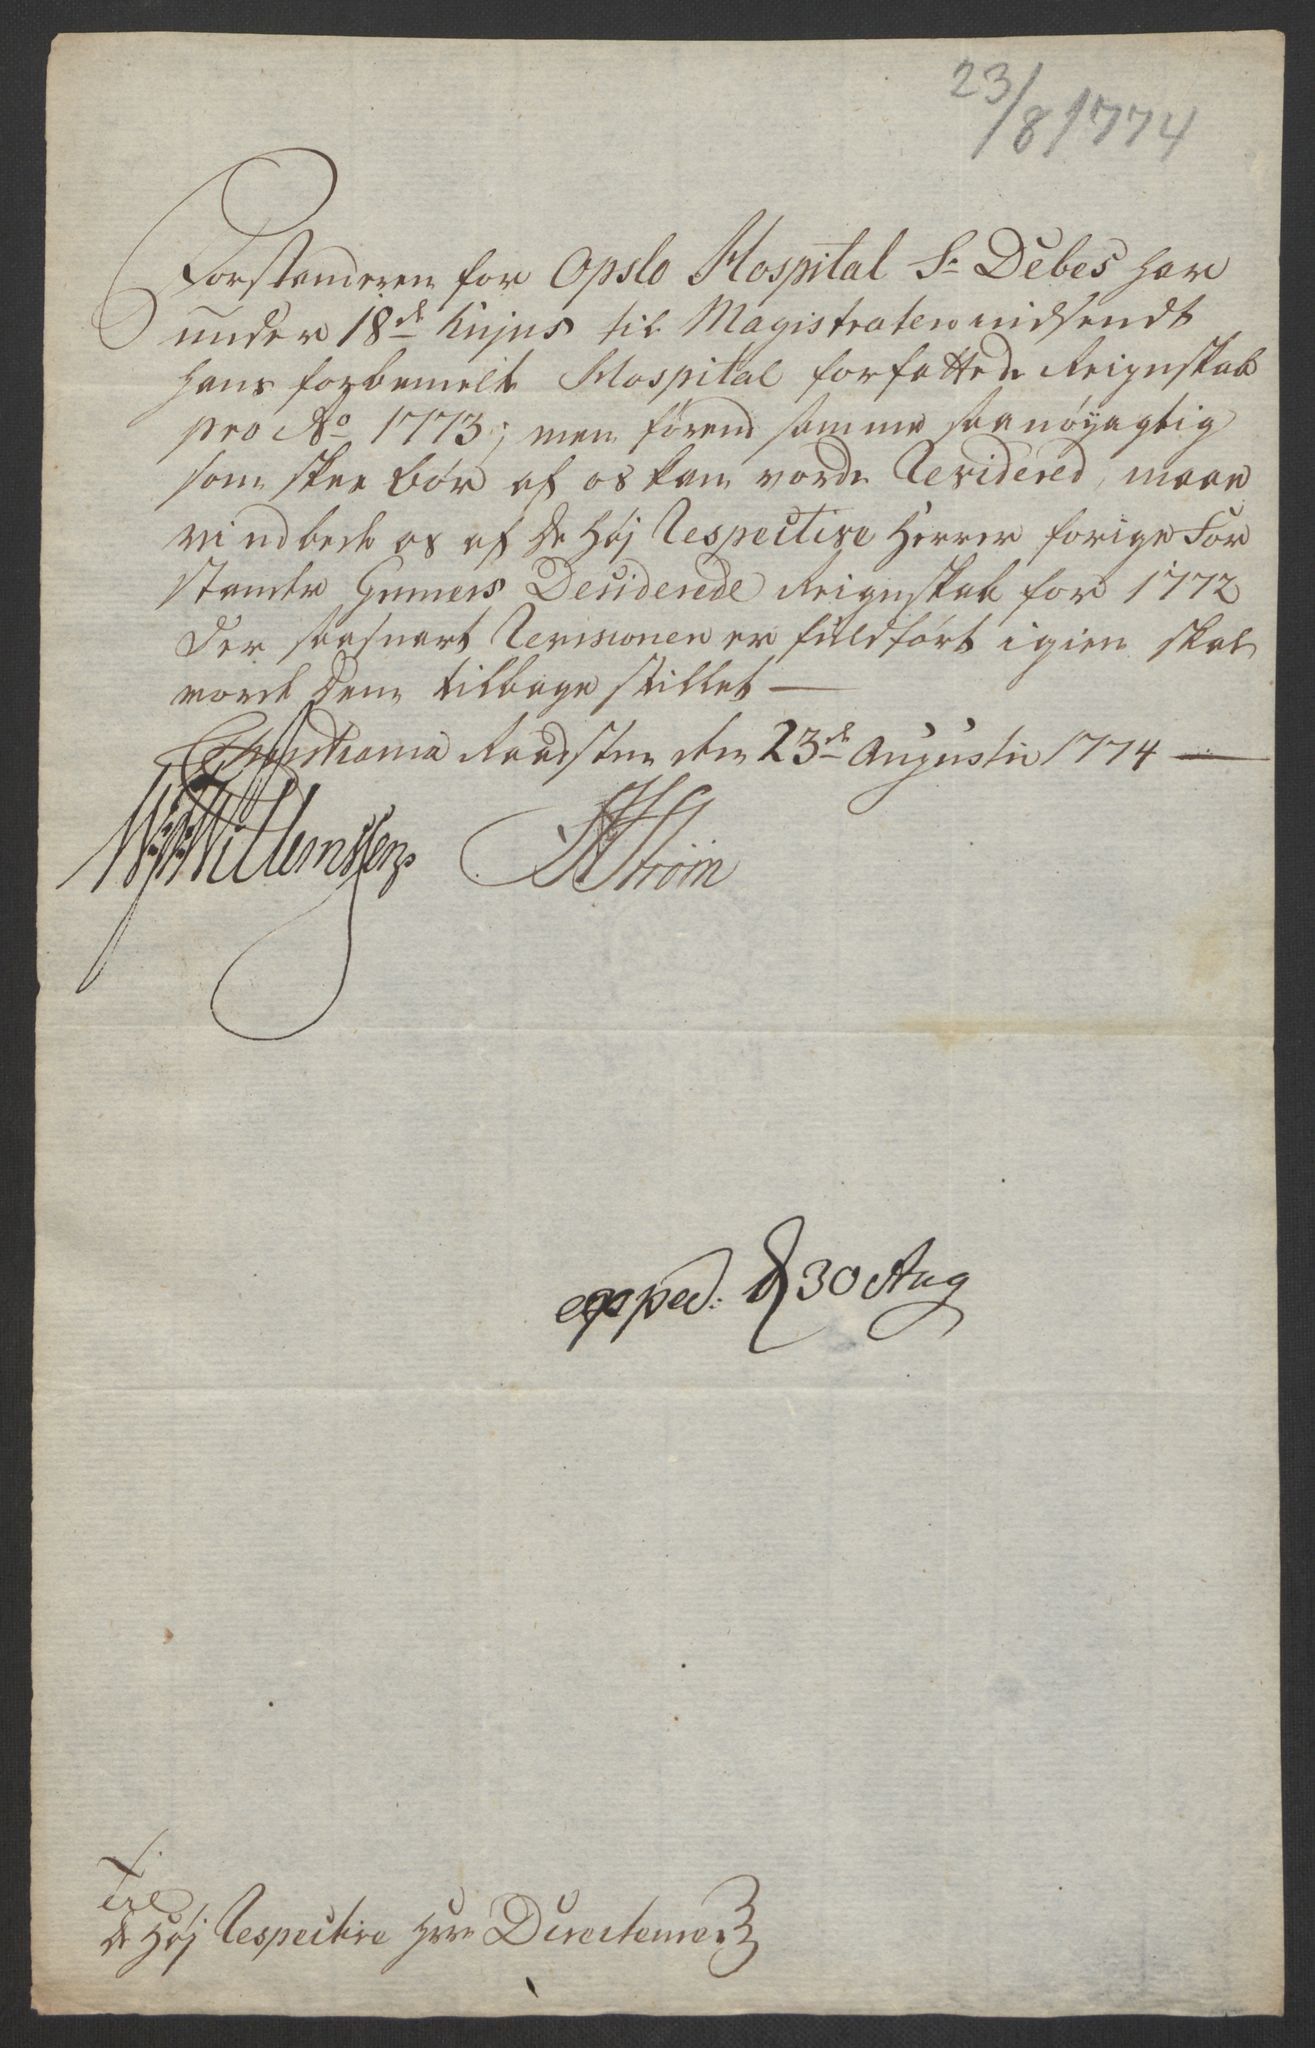 23/8 1774
Forstanderen for Opslo Hospital Sr. Debes har
under 18de hujus til Magistraten indsendt
hans forbemelte Hospital forfattede Reignskab
pro Ao 1773; menførend samme saa nøyagtig
som skee bør af os kan vorde Revidered, maae
vi udbede os af de Høj Respective Herrer forige For
stander Deciderede Reignskab for 1772
der saasnart Revisionen er fuldført igien skal
vorde dem tilbage stillet —
Christiania Raadstue den 23de Augustii 1774 —
Willemssen Strøm
exped: d 30 Aug
Til
de Høj Respective Herr Directeurer